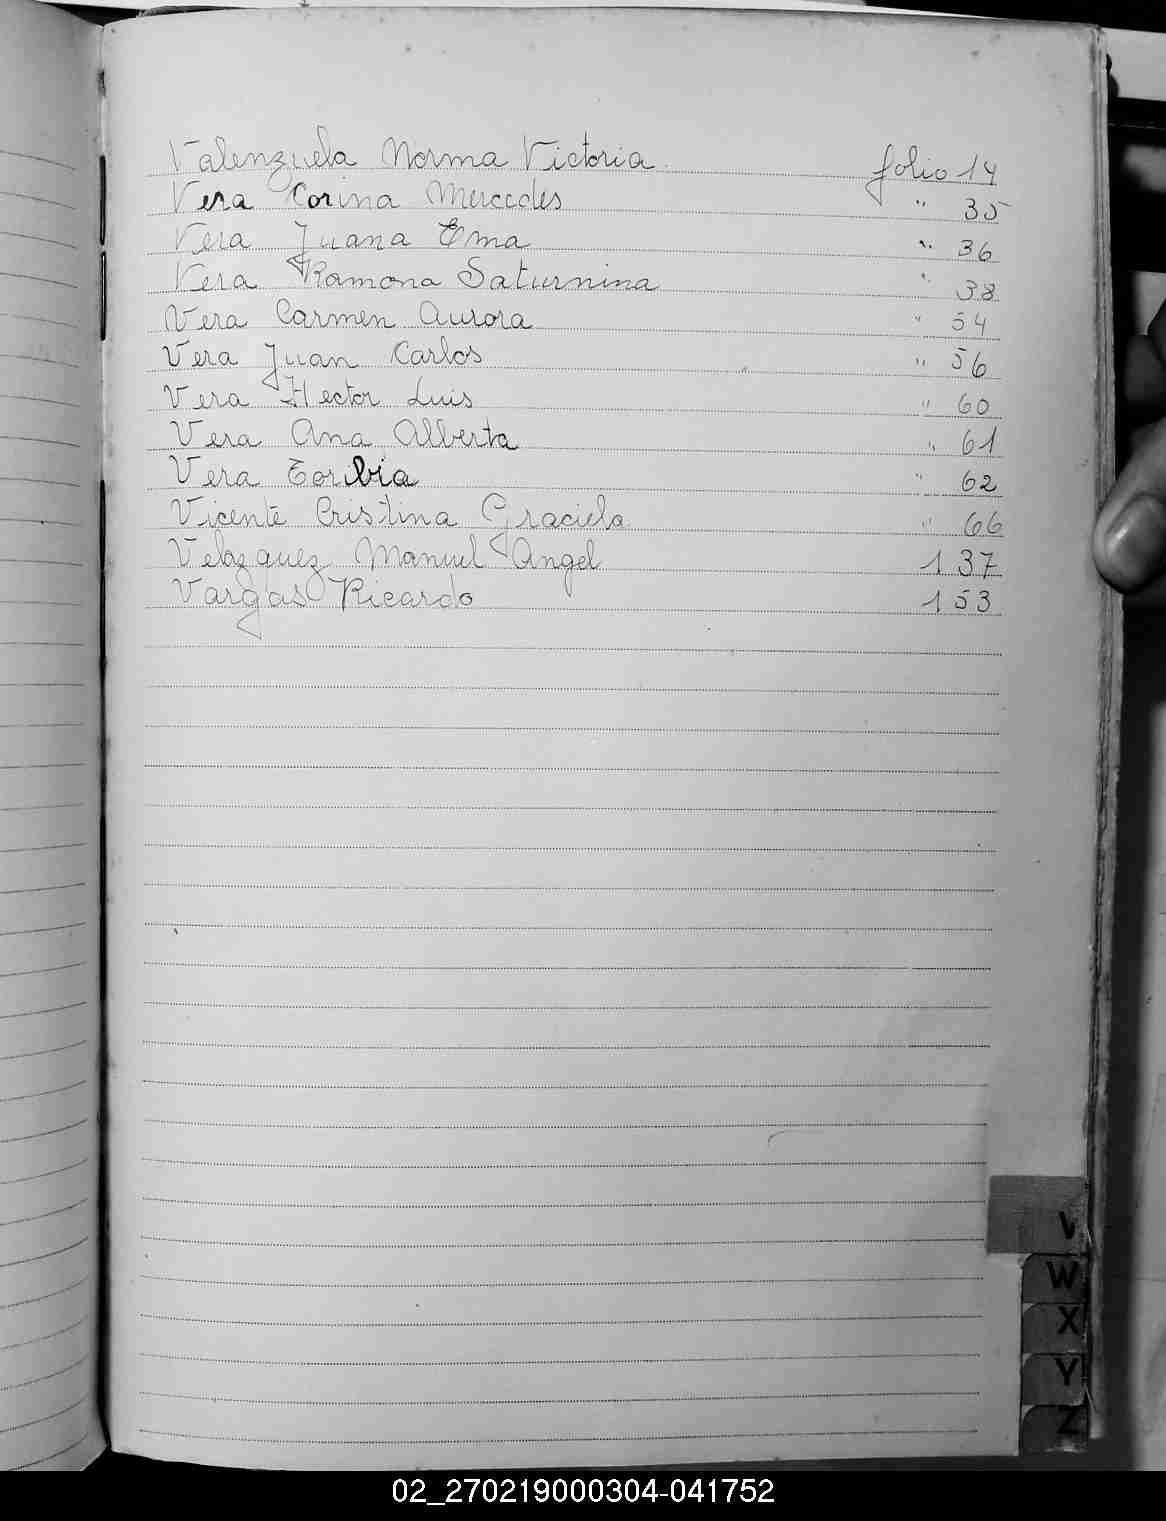 Valenzuela Norma Victoria folio 14
Vera Corina Mercedes " 35
Vera Juana Ema " 36
Vera Ramona Saturnina " 38
Vera Carmen Aurora " 54
Vera Juan Carlos " 56
Vera Hector Luis " 60
Vera Ana Alberta " 61
Vera Toribia " 62
Vicente Cristina Graciela " 66
Velazquez Manuel Angel 137
Vargas Ricardo 153
V
W
X
Y
Z
02_270219000304-041752